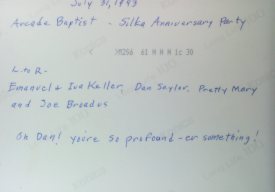 July 31, 1993
Arcade Baptist - Silka Anniversary Party
L to R -
Emanuel & Iva Keller, Dan Saylor, Pretty Mary
and Joe Broadus
Oh Dan! you're so profound - er something!